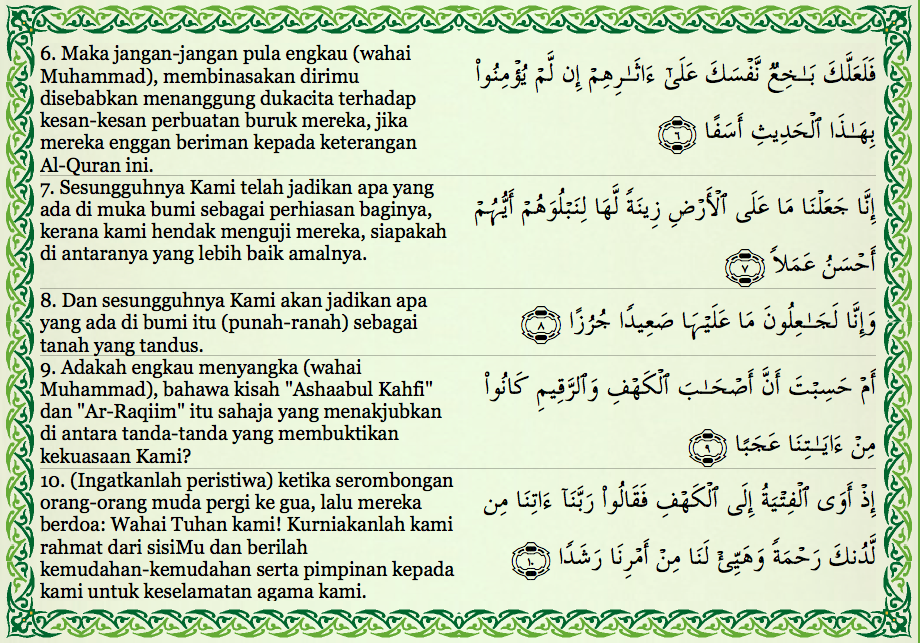 6. Maka jangan-jangan pula engkau (wahai
Muhammad), membinasakan dirimu
disebabkan menanggung dukacita terhadap
kesan-kesan perbuatan buruk mereka, jika
mereka enggan beriman kepada keterangan
Al-Quran ini.
فَلَعَلَّكَ بَـٰخِعٌ نَّفْسَكَ عَلَىٰٓ ءَاثَـٰرِهِمْ إِن لَّمْ يُؤْمِنُوا۟
بِهَـٰذَا ٱلْحَدِيثِ أَسَفًا ٦
7. Sesungguhnya Kami telah jadikan apa yang
ada di muka bumi sebagai perhiasan baginya,
kerana kami hendak menguji mereka, siapakah
di antaranya yang lebih baik amalnya.
إِنَّا جَعَلْنَا مَا عَلَى ٱلْأَرْضِ زِينَةً لَّهَا لِنَبْلُوَهُمْ أَيُّهُمْ
أَحْسَنُ عَمَلاً ٧
8. Dan sesungguhnya Kami akan jadikan apa
yang ada di bumi itu (punah-ranah) sebagai
tanah yang tandus.
وَإِنَّا لَجَـٰعِلُونَ مَا عَلَيْهَا صَعِيدًا جُرُزًا ٨
9. Adakah engkau menyangka (wahai
Muhammad), bahawa kisah "Ashaabul Kahfi"
dan "Ar-Raqiim" itu sahaja yang menakjubkan
di antara tanda-tanda yang membuktikan
kekuasaan Kami?
أَمْ حَسِبْتَ أَنَّ أَصْحَـٰبَ ٱلْكَهْفِ وَٱلرَّقِيمِ كَانُوا۟
مِنْ ءَايَـٰتِنَا عَجَبًا ٩
10. (Ingatkanlah peristiwa) ketika serombongan
orang-orang muda pergi ke gua, lalu mereka
berdoa: Wahai Tuhan kami! Kurniakanlah kami
rahmat dari sisiMu dan berilah
kemudahan-kemudahan serta pimpinan kepada
kami untuk keselamatan agama kami.
إِذْ أَوَى ٱلْفِتْيَةُ إِلَى ٱلْكَهْفِ فَقَالُوا۟ رَبَّنَآ ءَاتِنَا مِن
لَّدُنكَ رَحْمَةً وَهَيِّئْ لَنَا مِنْ أَمْرِنَا رَشَدًا ١٠